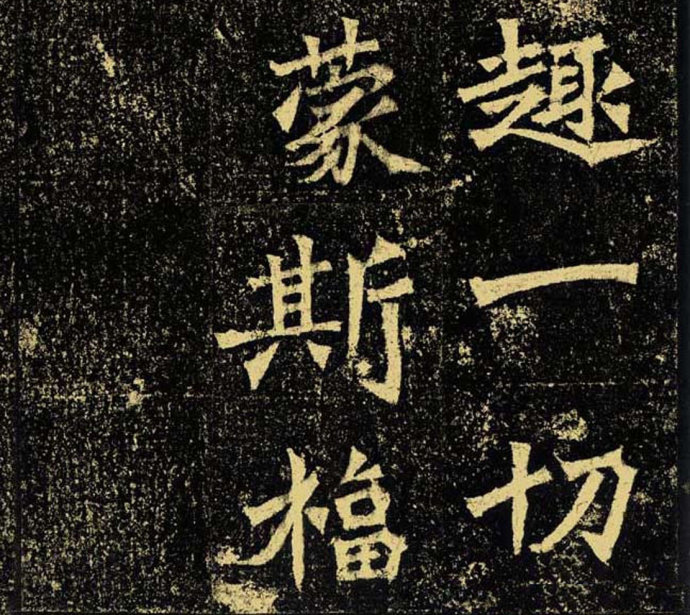 趣一切
蒙斯福